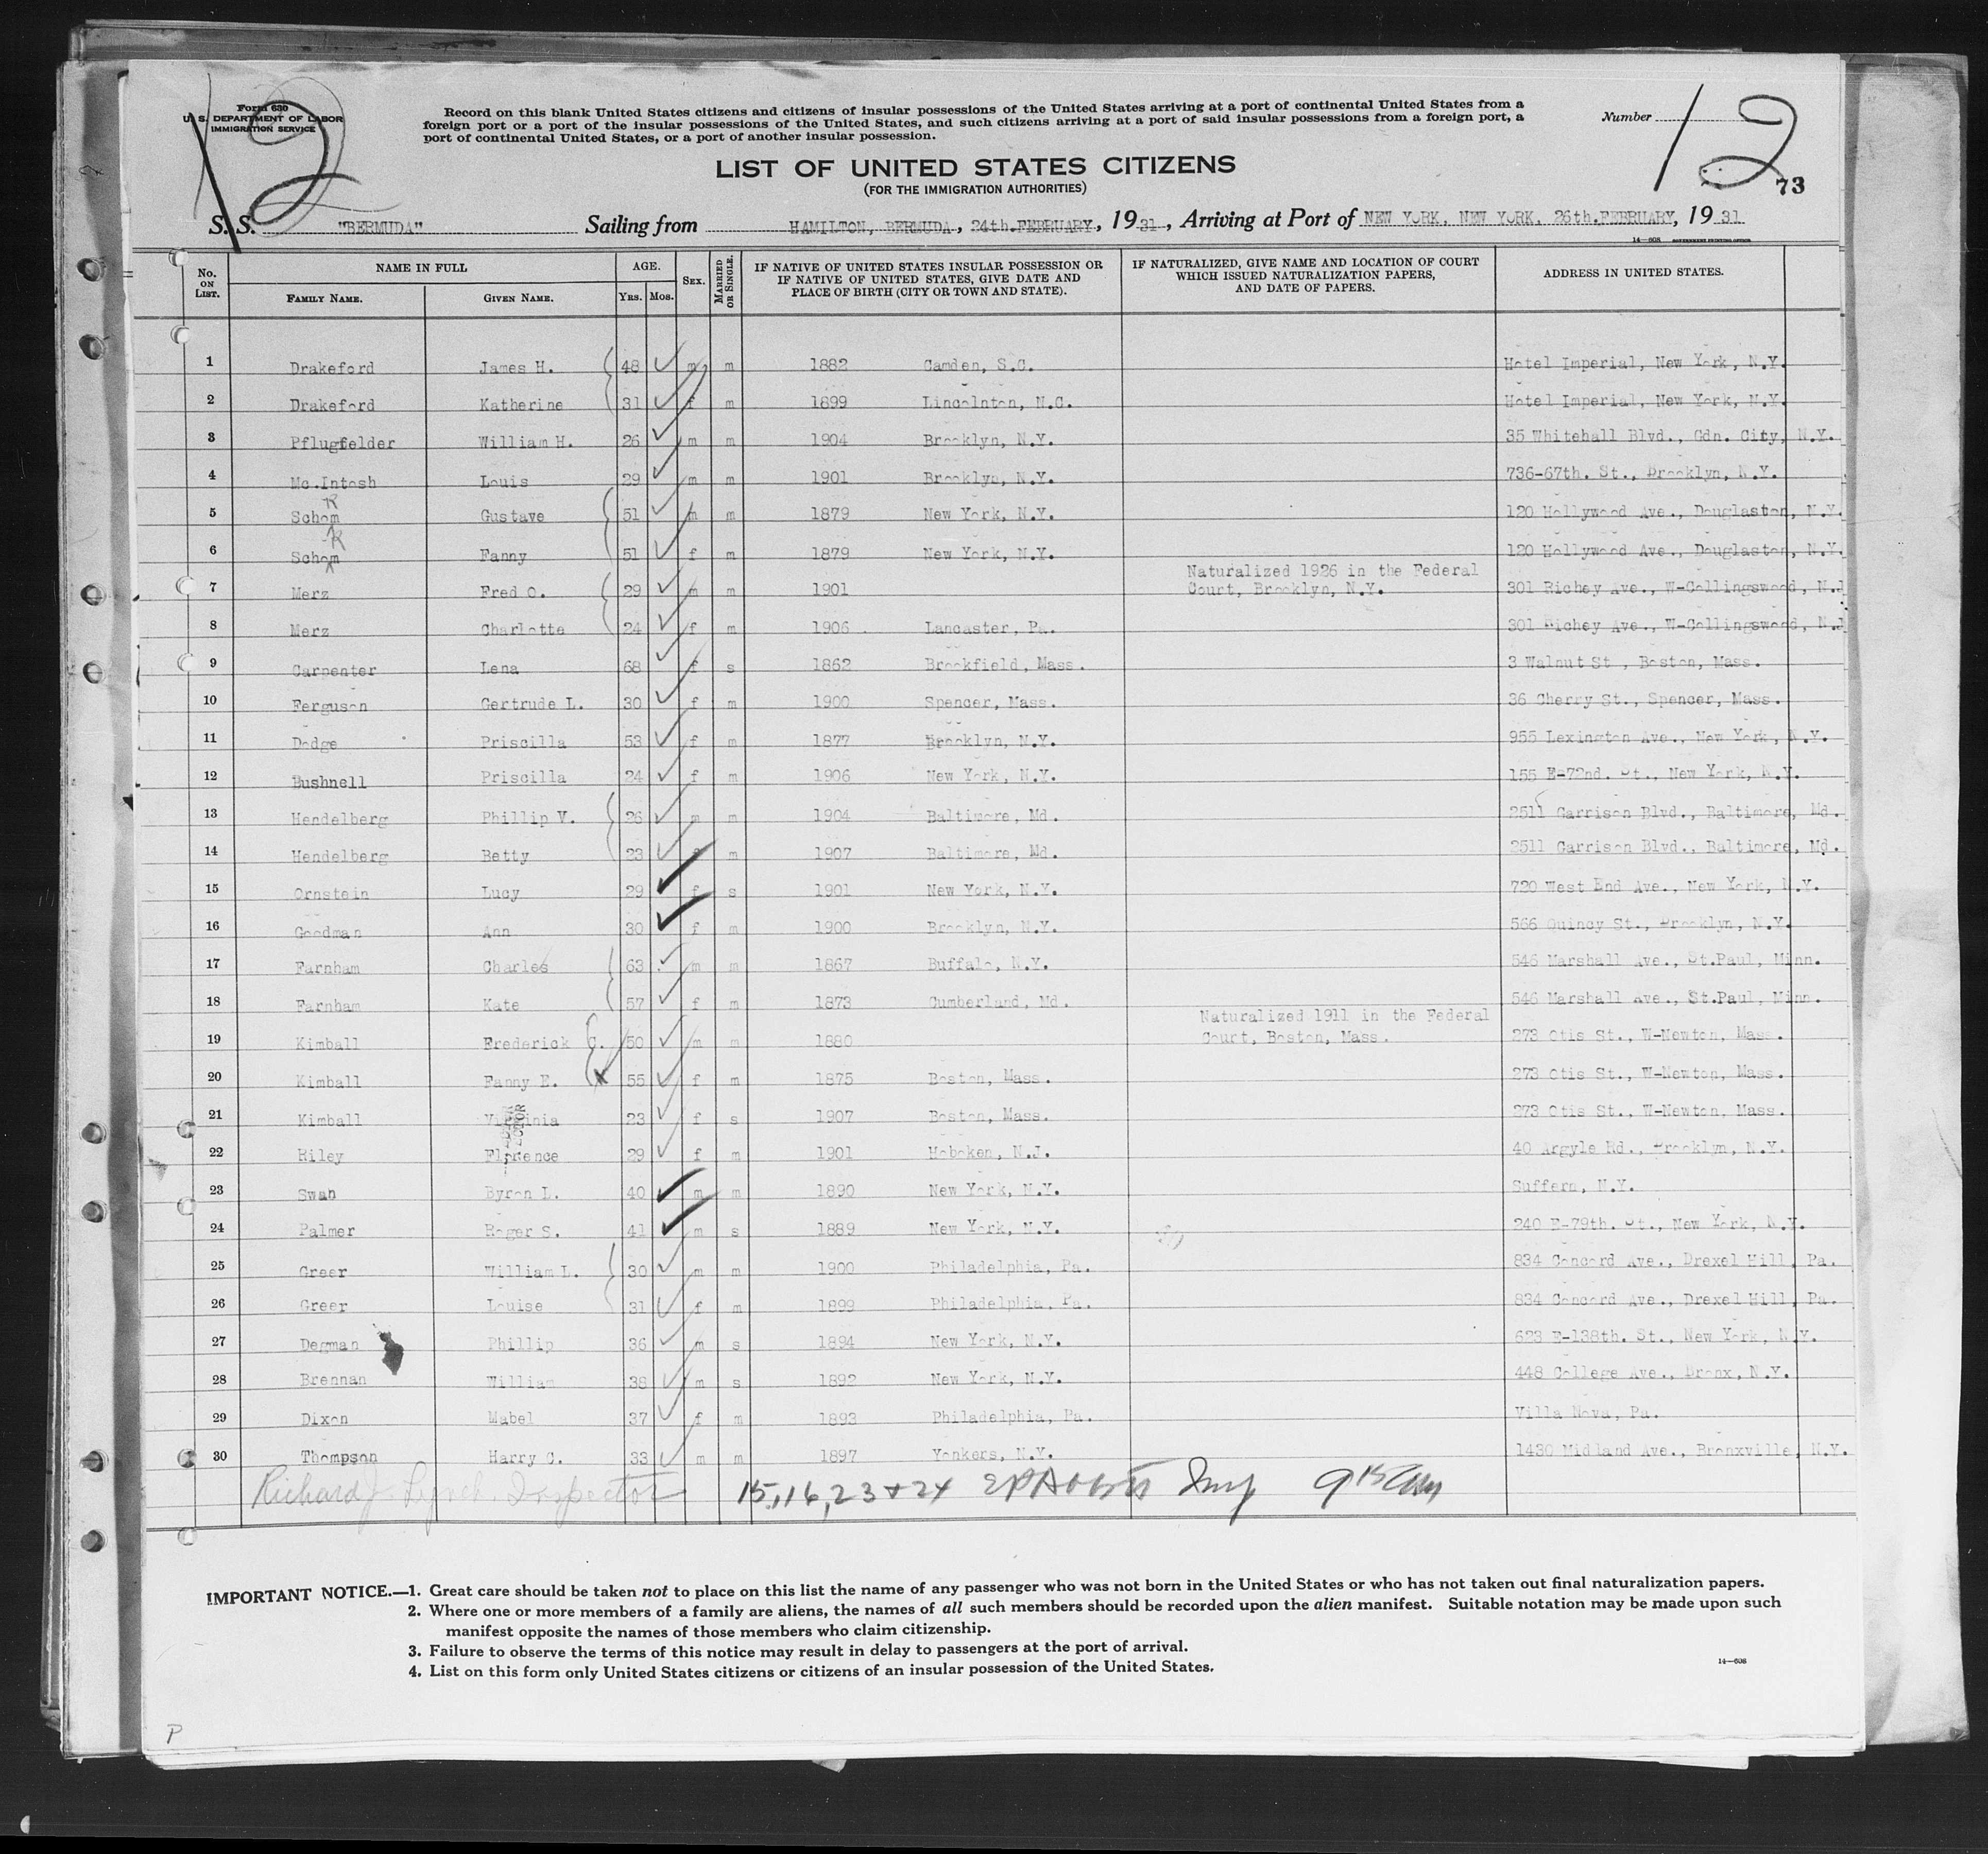 12
Form 630
U. S. DEPARTMENT OF LABOR
IMMIGRATION SERVICE
Record on this blank United States citizens and citizens of insular possessions of the United States arriving at a port of continental United States from a
foreign port or a port of the insular possessions of the United States, and such citizens arriving at a port of said insular possessions from a foreign port, a
port of continental United States, or a port of another insular possession.
Number 12
LIST OF UNITED STATES CITIZENS
(FOR THE IMMIGRATION AUTHORITIES)
73
S. S. "BERMUDA" Sailing from HAMILTON, BERMUDA, 24th.FEBRUARY, 1931, Arriving at Port of NEW YORK, NEW YORK, 26th.FEBRUARY, 1931
14—608 GOVERNMENT PRINTING OFFICE
No. ON LIST. NAME IN FULL FAMILY NAME. GIVEN NAME. AGE. YRS. MOS. SEX. MARRIED OR SINGLE. IF NATIVE OF UNITED STATES INSULAR POSSESSION OR IF NATIVE OF UNITED STATES, GIVE DATE AND PLACE OF BIRTH (CITY OR TOWN AND STATE). IF NATURALIZED, GIVE NAME AND LOCATION OF COURT WHICH ISSUED NATURALIZATION PAPERS, AND DATE OF PAPERS. ADDRESS IN UNITED STATES.
1 Drakeford James H. 48 m m 1882 Camden, S.C. Hotel Imperial, New York, N.Y.
2 Drakeford Katherine 31 f m 1899 Lincolnton, N.C. Hotel Imperial, New York, N.Y.
3 Pflugfelder William H. 26 m m 1904 Brooklyn, N.Y. 35 Whitehall Blvd., Gdn. City, N.Y.
4 Mc.Intosh Louis 29 m m 1901 Brooklyn, N.Y. 736-67th. St., Brooklyn, N.Y.
5 Schom R Gustave 51 m m 1879 New York, N.Y. 120 Hollywood Ave., Douglaston, N.Y.
6 Schom R Fanny 51 f m 1879 New York, N.Y. 120 Hollywood Ave., Douglaston, N.Y.
7 Merz Fred O. 29 m m 1901 Naturalized 1926 in the Federal Court, Brooklyn, N.Y. 301 Richey Ave., W-Collingswood, N.J
8 Merz Charlotte 24 f m 1906 Lancaster, Pa. 301 Richey Ave., W-Collingswood, N.J
9 Carpenter Lena 68 f s 1862 Brookfield, Mass. 3 Walnut St., Boston, Mass.
10 Ferguson Gertrude L. 30 f m 1900 Spencer, Mass. 36 Cherry St., Spencer, Mass.
11 Dodge Priscilla 53 f m 1877 Brooklyn, N.Y. 955 Lexington Ave., New York, N.Y.
12 Bushnell Priscilla 24 f m 1906 New York, N.Y. 155 E-72nd. St., New York, N.Y.
13 Hendelberg Phillip V. 26 m m 1904 Baltimore, Md. 2511 Garrison Blvd., Baltimore, Md.
14 Hendelberg Betty 23 f m 1907 Baltimore, Md. 2511 Garrison Blvd., Baltimore, Md.
15 Ornstein Lucy 29 f s 1901 New York, N.Y. 720 West End Ave., New York, N.Y.
16 Goodman Ann 30 f m 1900 Brooklyn, N.Y. 566 Quincy St., Brooklyn, N.Y.
17 Farnham Charles 63 m m 1867 Buffalo, N.Y. 546 Marshall Ave., St.Paul, Minn.
18 Farnham Kate 57 f m 1873 Cumberland, Md. 546 Marshall Ave., St.Paul, Minn.
19 Kimball Frederick C. 50 m m 1880 Naturalized 1911 in the Federal Court, Boston, Mass. 273 Otis St., W-Newton, Mass.
20 Kimball Fanny E. 55 f m 1875 Boston, Mass. 273 Otis St., W-Newton, Mass.
21 Kimball Virginia 23 f s 1907 Boston, Mass. 273 Otis St., W-Newton, Mass.
22 Riley Florence 29 f m 1901 Hoboken, N.J. 40 Argyle Rd., Brooklyn, N.Y.
23 Swan Byron L. 40 m m 1890 New York, N.Y. Suffern, N.Y.
24 Palmer Roger S. 41 m s 1889 New York, N.Y. 240 E-79th. St., New York, N.Y.
25 Greer William L. 30 m m 1900 Philadelphia, Pa. 834 Concord Ave., Drexel Hill, Pa.
26 Greer Louise 31 f m 1899 Philadelphia, Pa. 834 Concord Ave., Drexel Hill, Pa.
27 Degman Phillip 36 m s 1894 New York, N.Y. 623 E-138th. St., New York, N.Y.
28 Brennan William 38 m s 1892 New York, N.Y. 448 College Ave., Bronx, N.Y.
29 Dixon Mabel 37 f m 1893 Philadelphia, Pa. Villa Nova, Pa.
30 Thompson Harry C. 33 m m 1897 Yonkers, N.Y. 1430 Midland Ave., Bronxville, N.Y.
Richard J. Lynch, Inspector 15, 16, 23 + 24
IMPORTANT NOTICE.—1. Great care should be taken not to place on this list the name of any passenger who was not born in the United States or who has not taken out final naturalization papers.
2. Where one or more members of a family are aliens, the names of all such members should be recorded upon the alien manifest. Suitable notation may be made upon such
manifest opposite the names of those members who claim citizenship.
3. Failure to observe the terms of this notice may result in delay to passengers at the port of arrival.
4. List on this form only United States citizens or citizens of an insular possession of the United States.
14—608
P